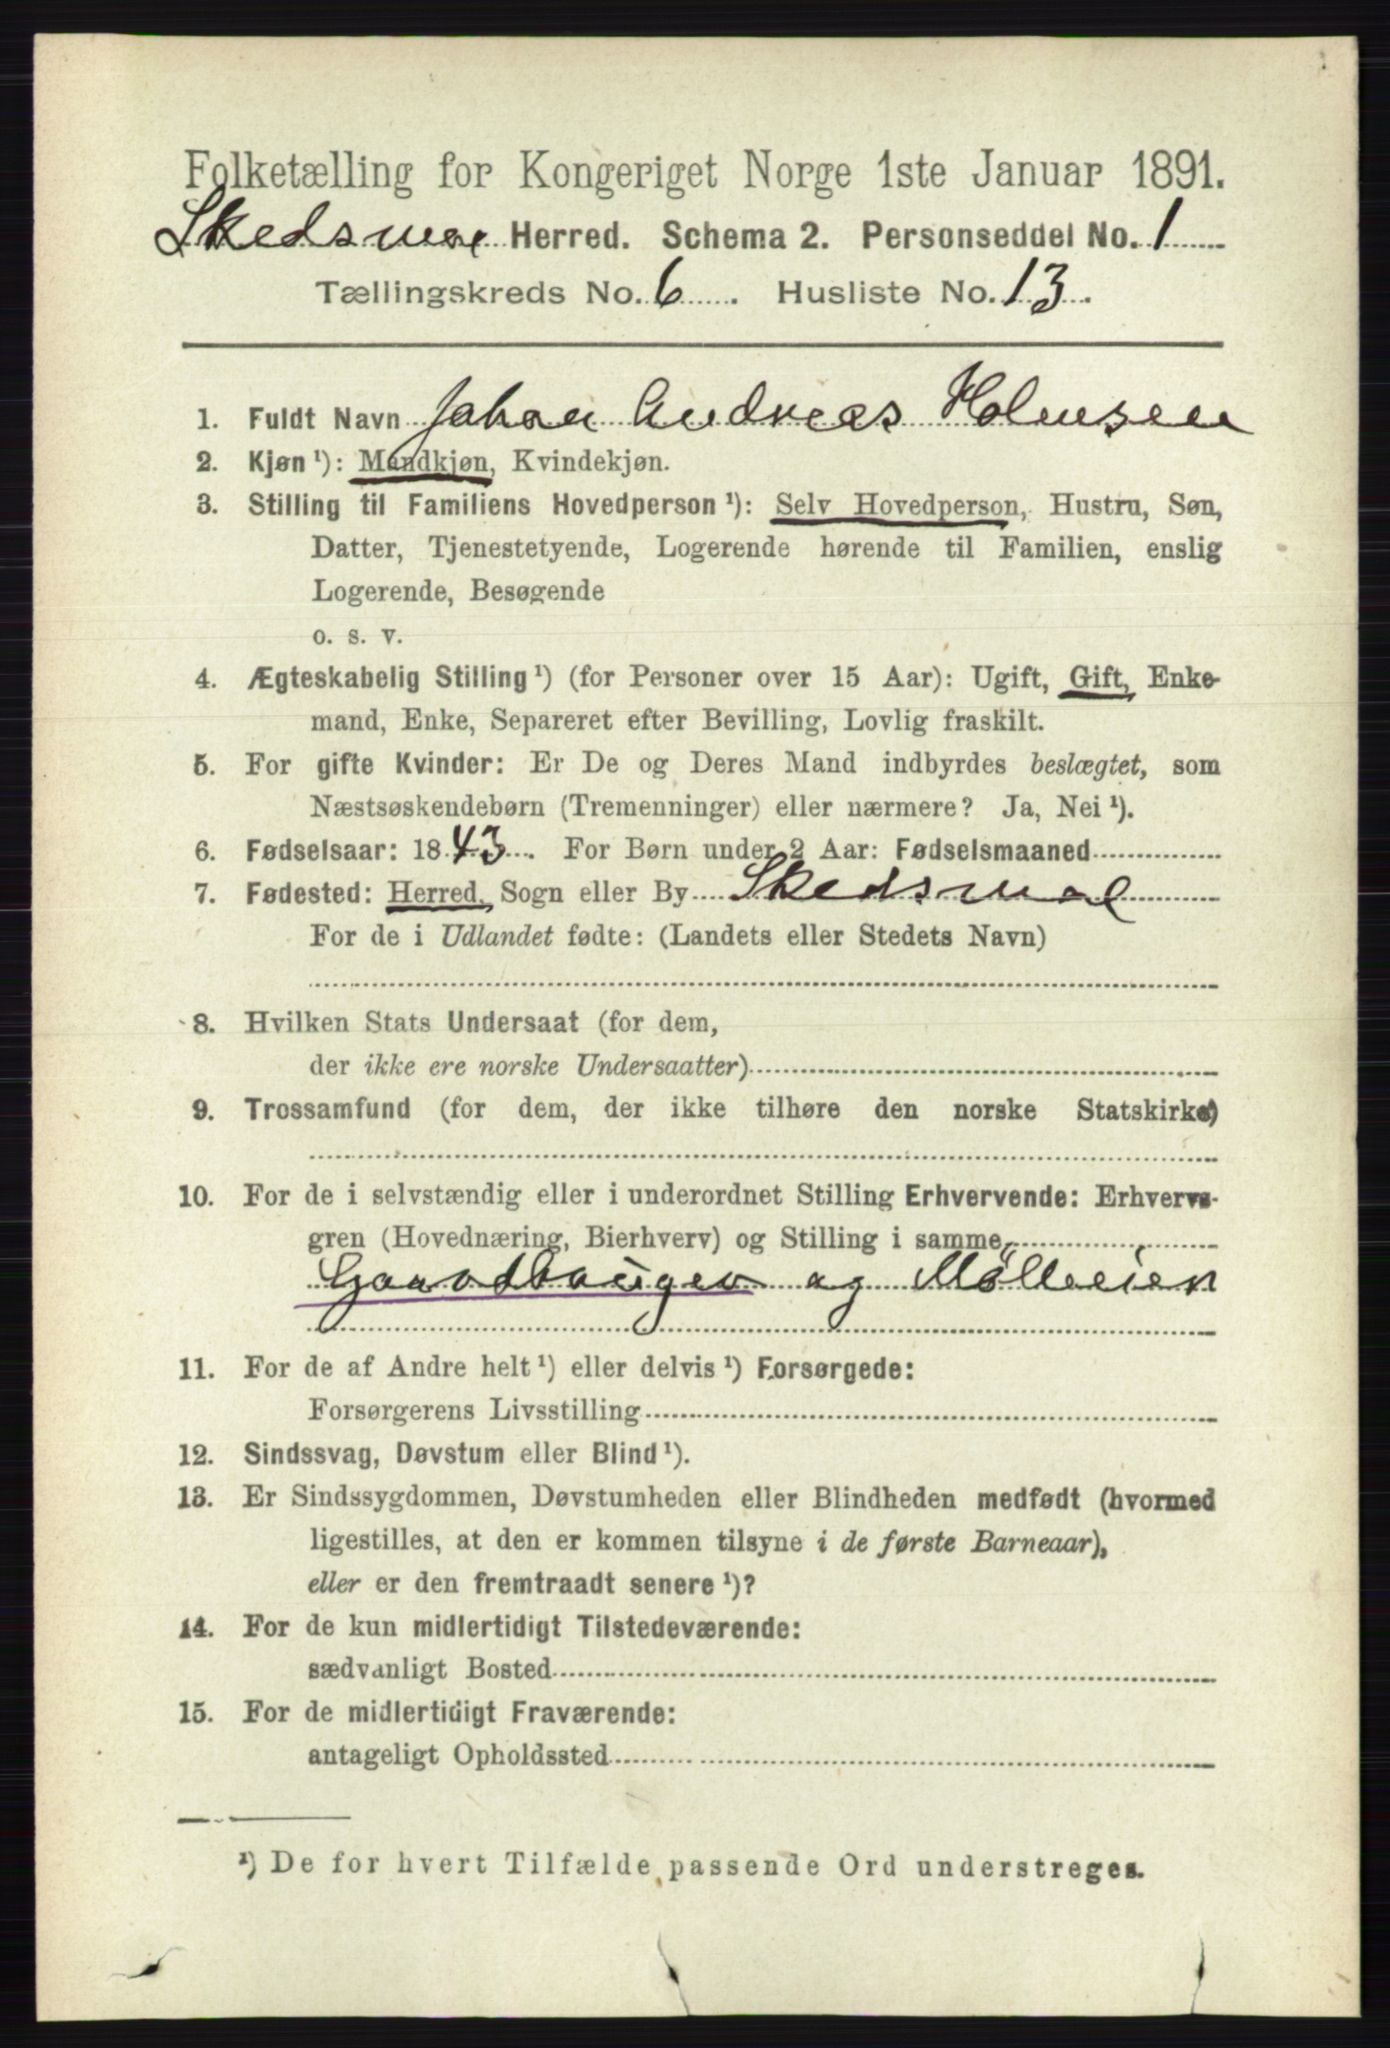 Folketælling for Kongeriget Norge 1ste Januar 1891.
Skedsmoe Herred. Schema 2. Personseddel No. 1
Tællingskreds No. 6. Husliste No. 13.
1. Fuldt Navn Johan Andreas Holmsen
2. Kjøn ¹): Mandkjøn, Kvindekjøn.
3. Stilling til Familiens Hovedperson ¹): Selv Hovedperson, Hustru, Søn,
Datter, Tjenestetyende, Logerende hørende til Familien, enslig
Logerende, Besøgende
o. s. v.
4. Ægteskabelig Stilling ¹) (for Personer over 15 Aar): Ugift, Gift, Enke-
mand, Enke, Separeret efter Bevilling, Lovlig fraskilt.
5. For gifte Kvinder: Er De og Deres Mand indbyrdes beslægtet, som
Næstsøskendebørn (Tremenninger) eller nærmere? Ja, Nei ¹).
6. Fødselsaar: 1843. For Børn under 2 Aar: Fødselsmaaned
7. Fødested: Herred, Sogn eller By Skedsmoe
For de i Udlandet fødte: (Landets eller Stedets Navn)
8. Hvilken Stats Undersaat (for dem,
der ikke ere norske Undersaatter)
9. Trossamfund (for dem, der ikke tilhøre den norske Statskirke)
10. For de i selvstændig eller i underordnet Stilling Erhvervende: Erhvervs-
gren (Hovednæring, Bierhverv) og Stilling i samme
Gaardbruger og Mølleeier
11. For de af Andre helt ¹) eller delvis ¹) Forsørgede:
Forsørgerens Livsstilling
12. Sindssvag, Døvstum eller Blind ¹).
13. Er Sindssygdommen, Døvstumheden eller Blindheden medfødt (hvormed
ligestilles, at den er kommen tilsyne i de første Barneaar),
eller er den fremtraadt senere ¹)?
14. For de kun midlertidigt Tilstedeværende:
sædvanligt Bosted
15. For de midlertidigt Fraværende:
antageligt Opholdssted
¹) De for hvert Tilfælde passende Ord understreges.